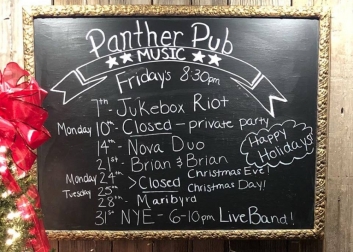 Panther Pub
MUSIC
Fridays 8:30pm
7th - Jukebox Riot
Monday 10th - Closed - private party
14th - Nova Duo
Happy
Holidays!
21st - Brian & Brian
Monday 24th > Closed Christmas Eve!
Tuesday 25th Christmas Day!
28th - Maribyrd
31st NYE - 6-10pm Live Band!